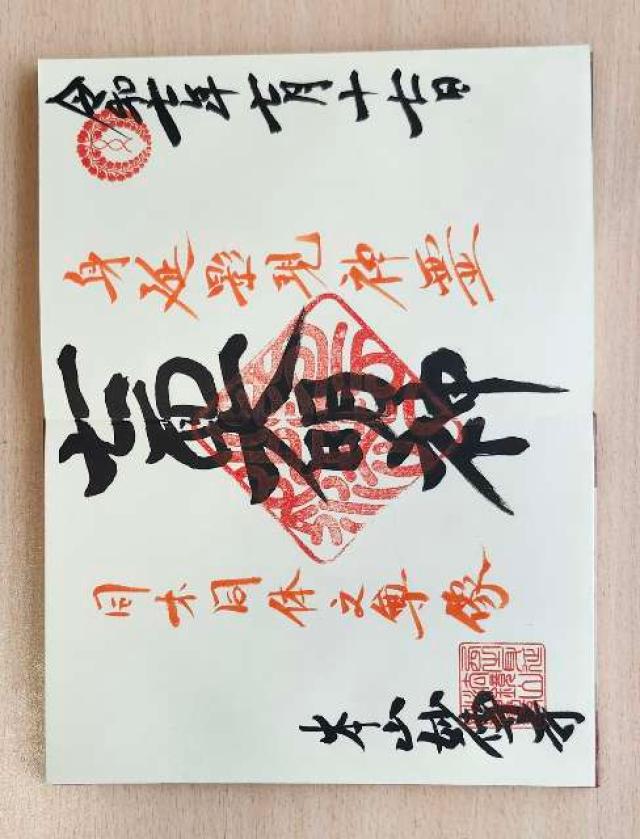 令和七年七月十七日
身延影現神霊
七面大明神
同木同体之尊像
本山妙傳寺